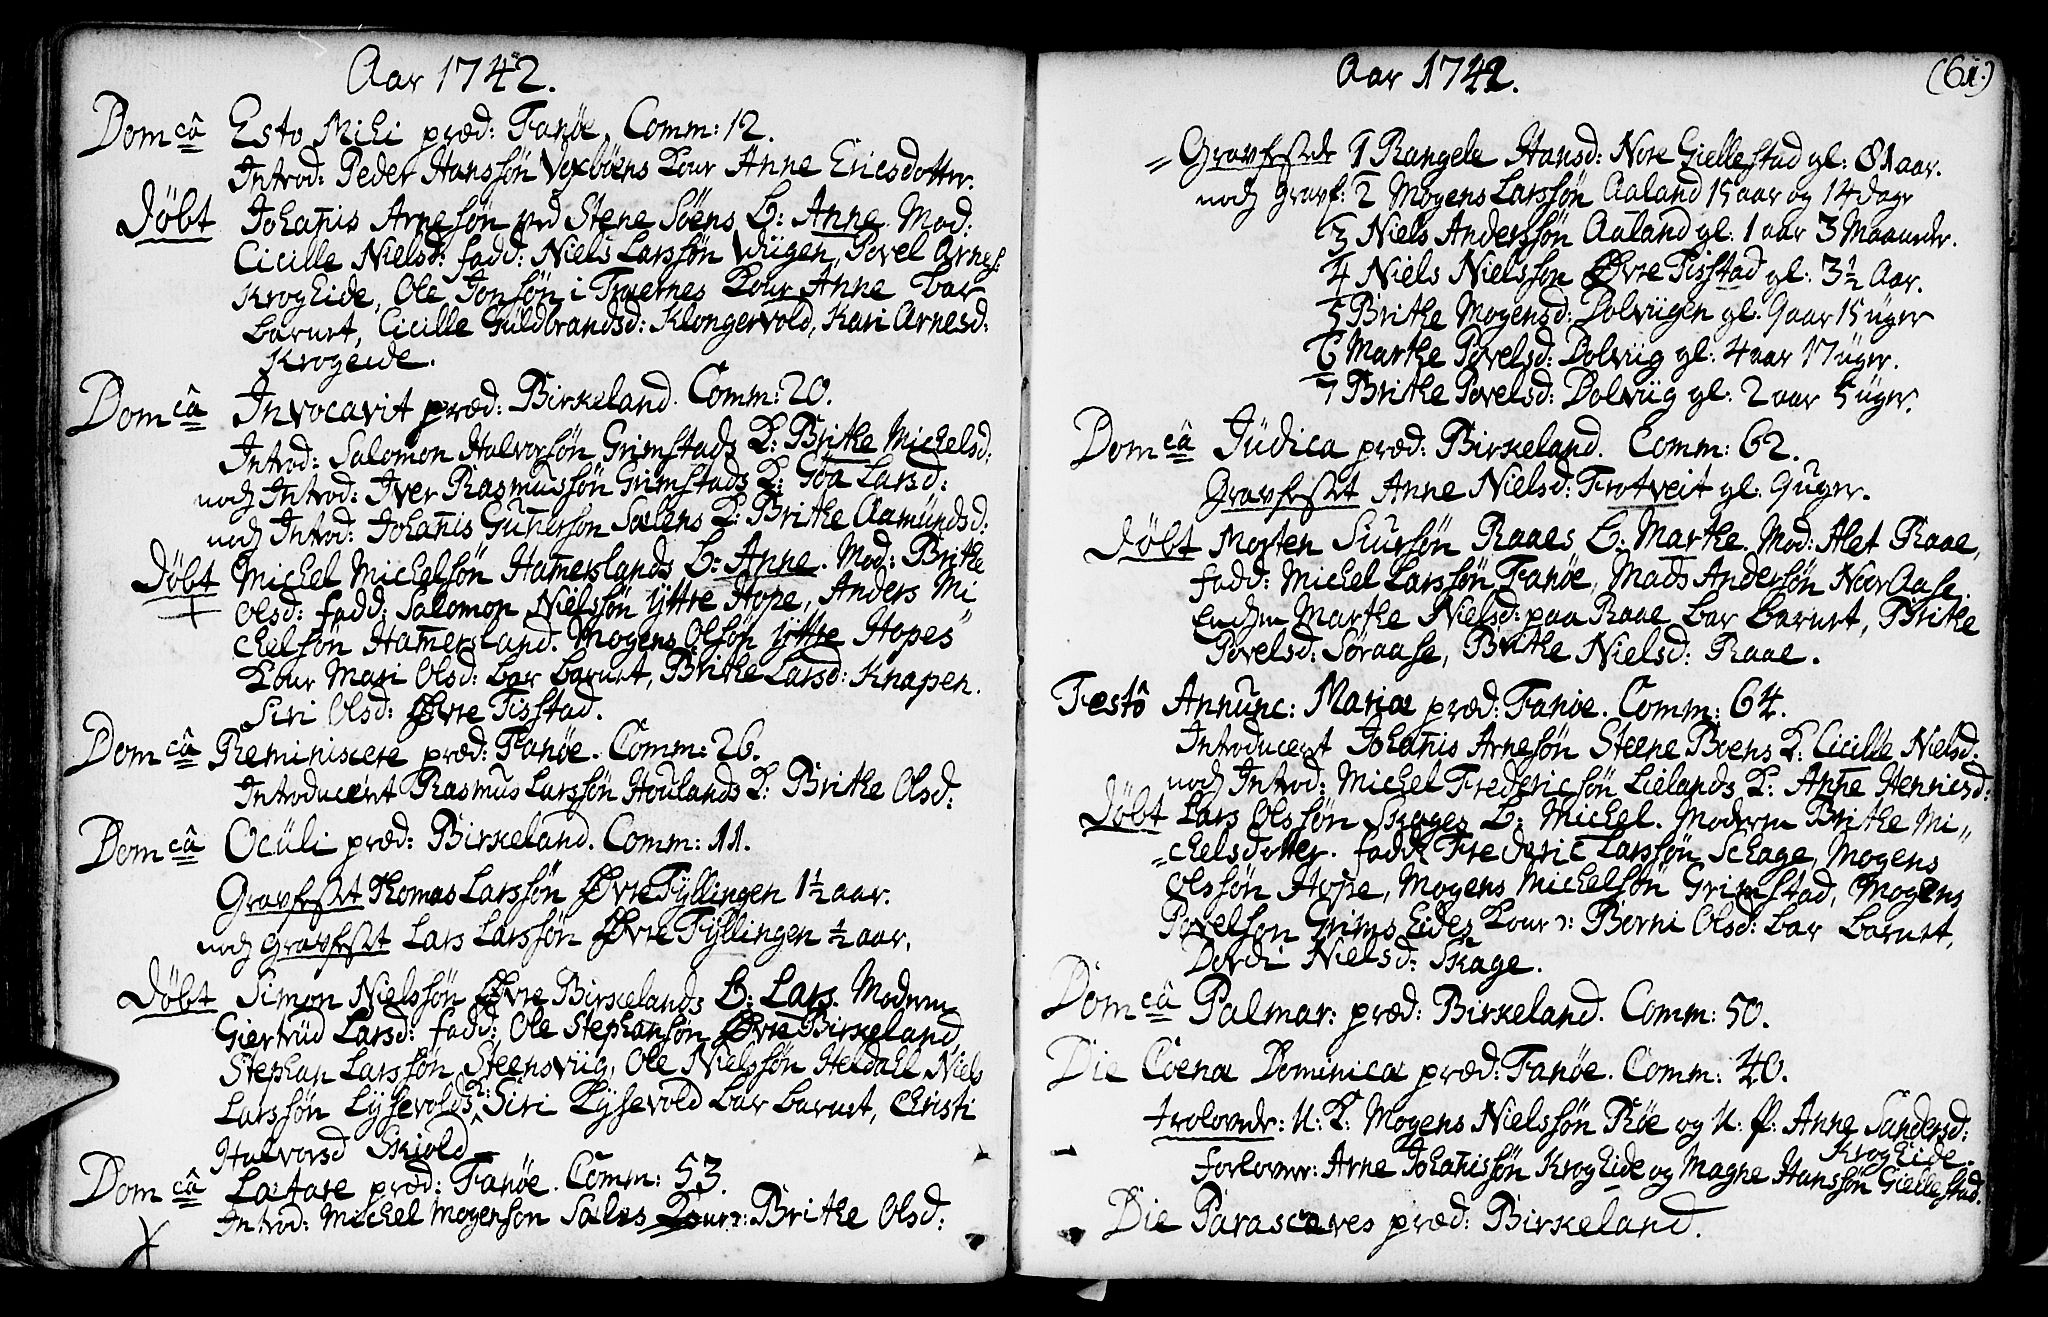 Aar 1742.
Dom câ Esto Mihi præd: Fanøe. Comm: 12.
Introd: Peder Hanssøn Voxboens Kone Anne Ericsdotter.
Døbt Johanis Arnesøn ved Stene Søens B: Anne. Mod:
Cicille Nielsd: fadd: Niels Larssøn Wiigen, Povel Arnes.
Krogeide, Ole Jonsøn i Træernes Kone Anne bar
barnet, Cicille Guldbrandsd: Klongervold, Kari Arnesd:
Krogeide.
Dom câ Invocavit præd: Birkeland. Comm: 20.
Introd: Salomon Halvorsøn Grimstads K: Brithe Michelsd:
nock Introd: Iver Rasmussøn Grimstads K: Göa Larsd:
nock Introd: Johanis Gunersøn Sælens K: Brithe Aamundsd:
Døbt Michel Michelsøn Hamerslands B: Anne. Mod: Brithe
Olsd: fadd: Salomon Nielssøn Yttre Hope, Anders Mi
chelsøn Hamersland. Mogens Olsøn Yttre Hopes
Kone Mari Olsd: bar barnet, Brithe Larsd: Knapen.
Siri Olsd: Øvre Tisstad.
Dom câ Reminiscere præd: Fanøe. Comm: 26.
Introduceret Rasmus Larssøn Houlands K: Brithe Olsd:
Dom câ Oculi præd: Birkeland. Comm: 11.
Gravfestet Thomas Larssøn Øvre Fyllingen 1½ aar.
nock gravfestet Lars Larssøn Øvre Fyllingen ½ aar.
Døbt Simon Nielssøn Øvre Birkelands B: Lars. Moderen
Giertrud Larsd: fadd: Ole Stephansøn Øvre Birkeland,
Stephan Larssøn Steensviig, Ole Nielssøn Heldahl, Niels
Larssøn Lysevolds K: Siri Lysevold bar barnet, Christi
Halvorsd Skiold
Dom câ Lætare præd: Fanøe. Comm: 53.
Introd: Michel Mogensøn Sæles Kone: Brithe Olsd:
Aar 1742. (61.)
Gravfestet 1 Rangele Hansd: Nore Giellestad gl: 81 aar.
nock gravf: 2 Mogens Larssøn Aaland 15 aar og 14 dage
3 Niels Anderssøn Aaland gl: 1 aar 3 Maaneder.
4 Niels Nielssøn Øvre Tisstad gl: 3½ Aar.
5 Brithe Mogensd: Dolviigen gl: 9 aar 15 uger
6 Marthe Povelsd: Dolviig gl: 4 aar 17 uger.
7 Brithe Povelsd: Dolviig gl: 2 aar 5 uger.
Dom câ Judica præd: Birkeland. Comm: 62.
Gravfestet Anne Nielsd: Trotveit gl: 9 uger.
Døbt Morten Siursøn Raaes B: Marthe. Mod: Alet Raae,
fadd: Michel Larssøn Fanøe, Mads Andersøn Nor Aase.
Marthe Nielsd: paa Raae bar barnet, Brithe
Povelsd: Søraase, Brithe Nielsd: Raae.
Festo Annunc: Mariæ præd: Fanøe. Comm: 64.
Introduceret Johanis Arnesøn Steene Boens K: Cicille Nielsd:
nock Introd: Michel Fredericsøn Lielands K: Anne Henricsd:
Døbt Lars Olssøn Skages B: Michel. Moderen Brithe Mi
chelsdotter. fadd: Frederic Larssøn Schage, Mogens
Olssøn Hope, Mogens Michelsøn Grimstad, Mogens
Povelsøn Grims Eides Kone: Borni Olsd: bar barnet,
Dordi Nielsd: Skage.
Dom câ Palmar: præd: Birkeland. Comm: 50.
Die Coenæ Dominicæ præd: Fanøe. Comm: 40.
trolovede: U: K: Mogens Nielssøn Røe og U: P: Anne Sandersd:
Krogeide.
forlovere: Arne Johanissøn Krogeide og Magne Hanssøn Giellestad.
Die Parasceves præd: Birkeland.